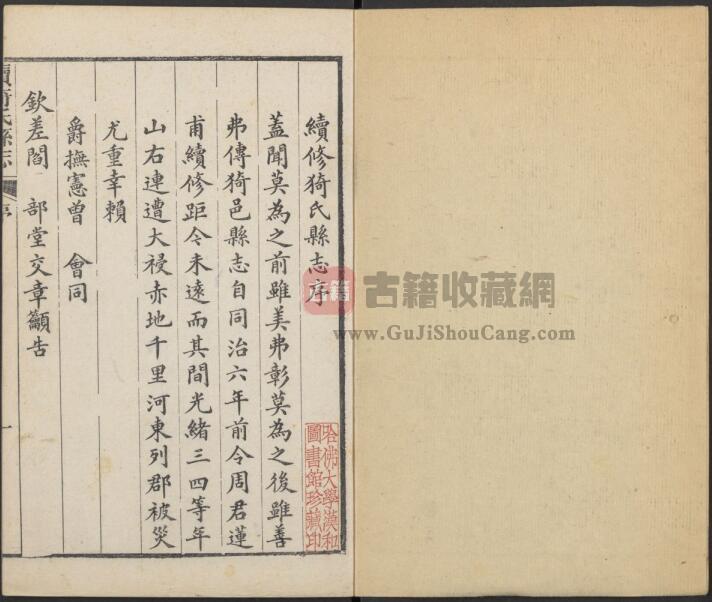 續修猗氏縣志序
蓋聞莫為之前雖美弗彰莫為之後雖善
弗傳猗邑縣志自同治六年前令周君蓮
甫續修距今未遠而其間光緒三四等年
山右連遭大祲赤地千里河東列郡被災
尤重幸賴
爵撫憲曾 會同
欽差閻 部堂交章籲告
續猗氏縣志
序
一
哈佛大學漢和
圖書館珍藏印
古籍
古籍收藏網
www.GuJiShouCang.com